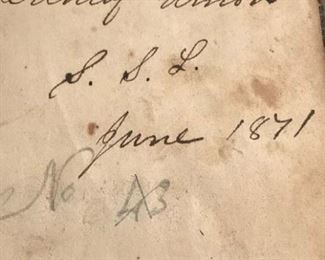 S. S. L.
June 1871
No. 43